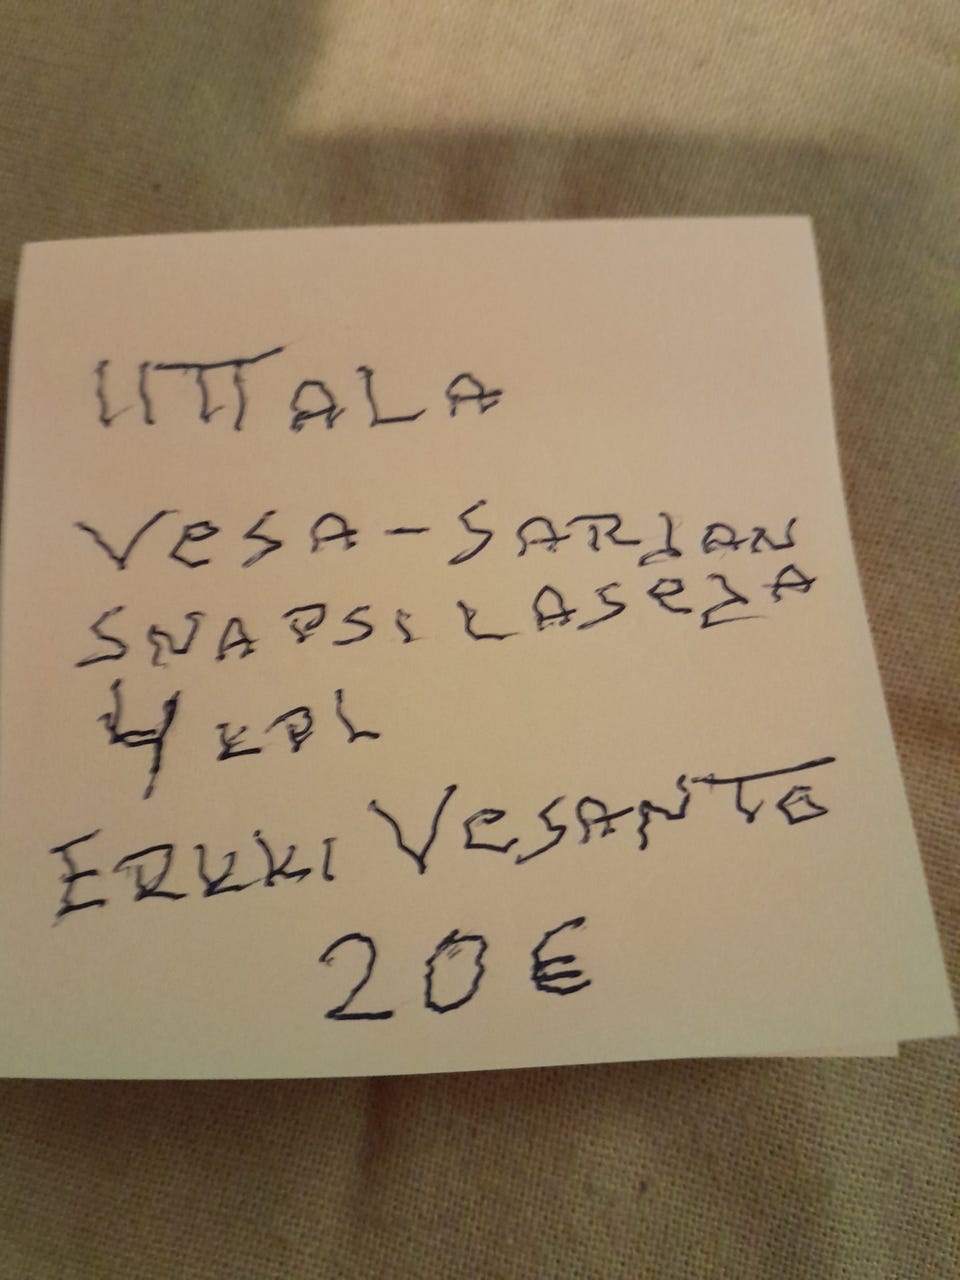 IITTALA
VESA-SARJAN
SNAPSILASEJA
4 KPL
ERKKI VESANTO
20 €